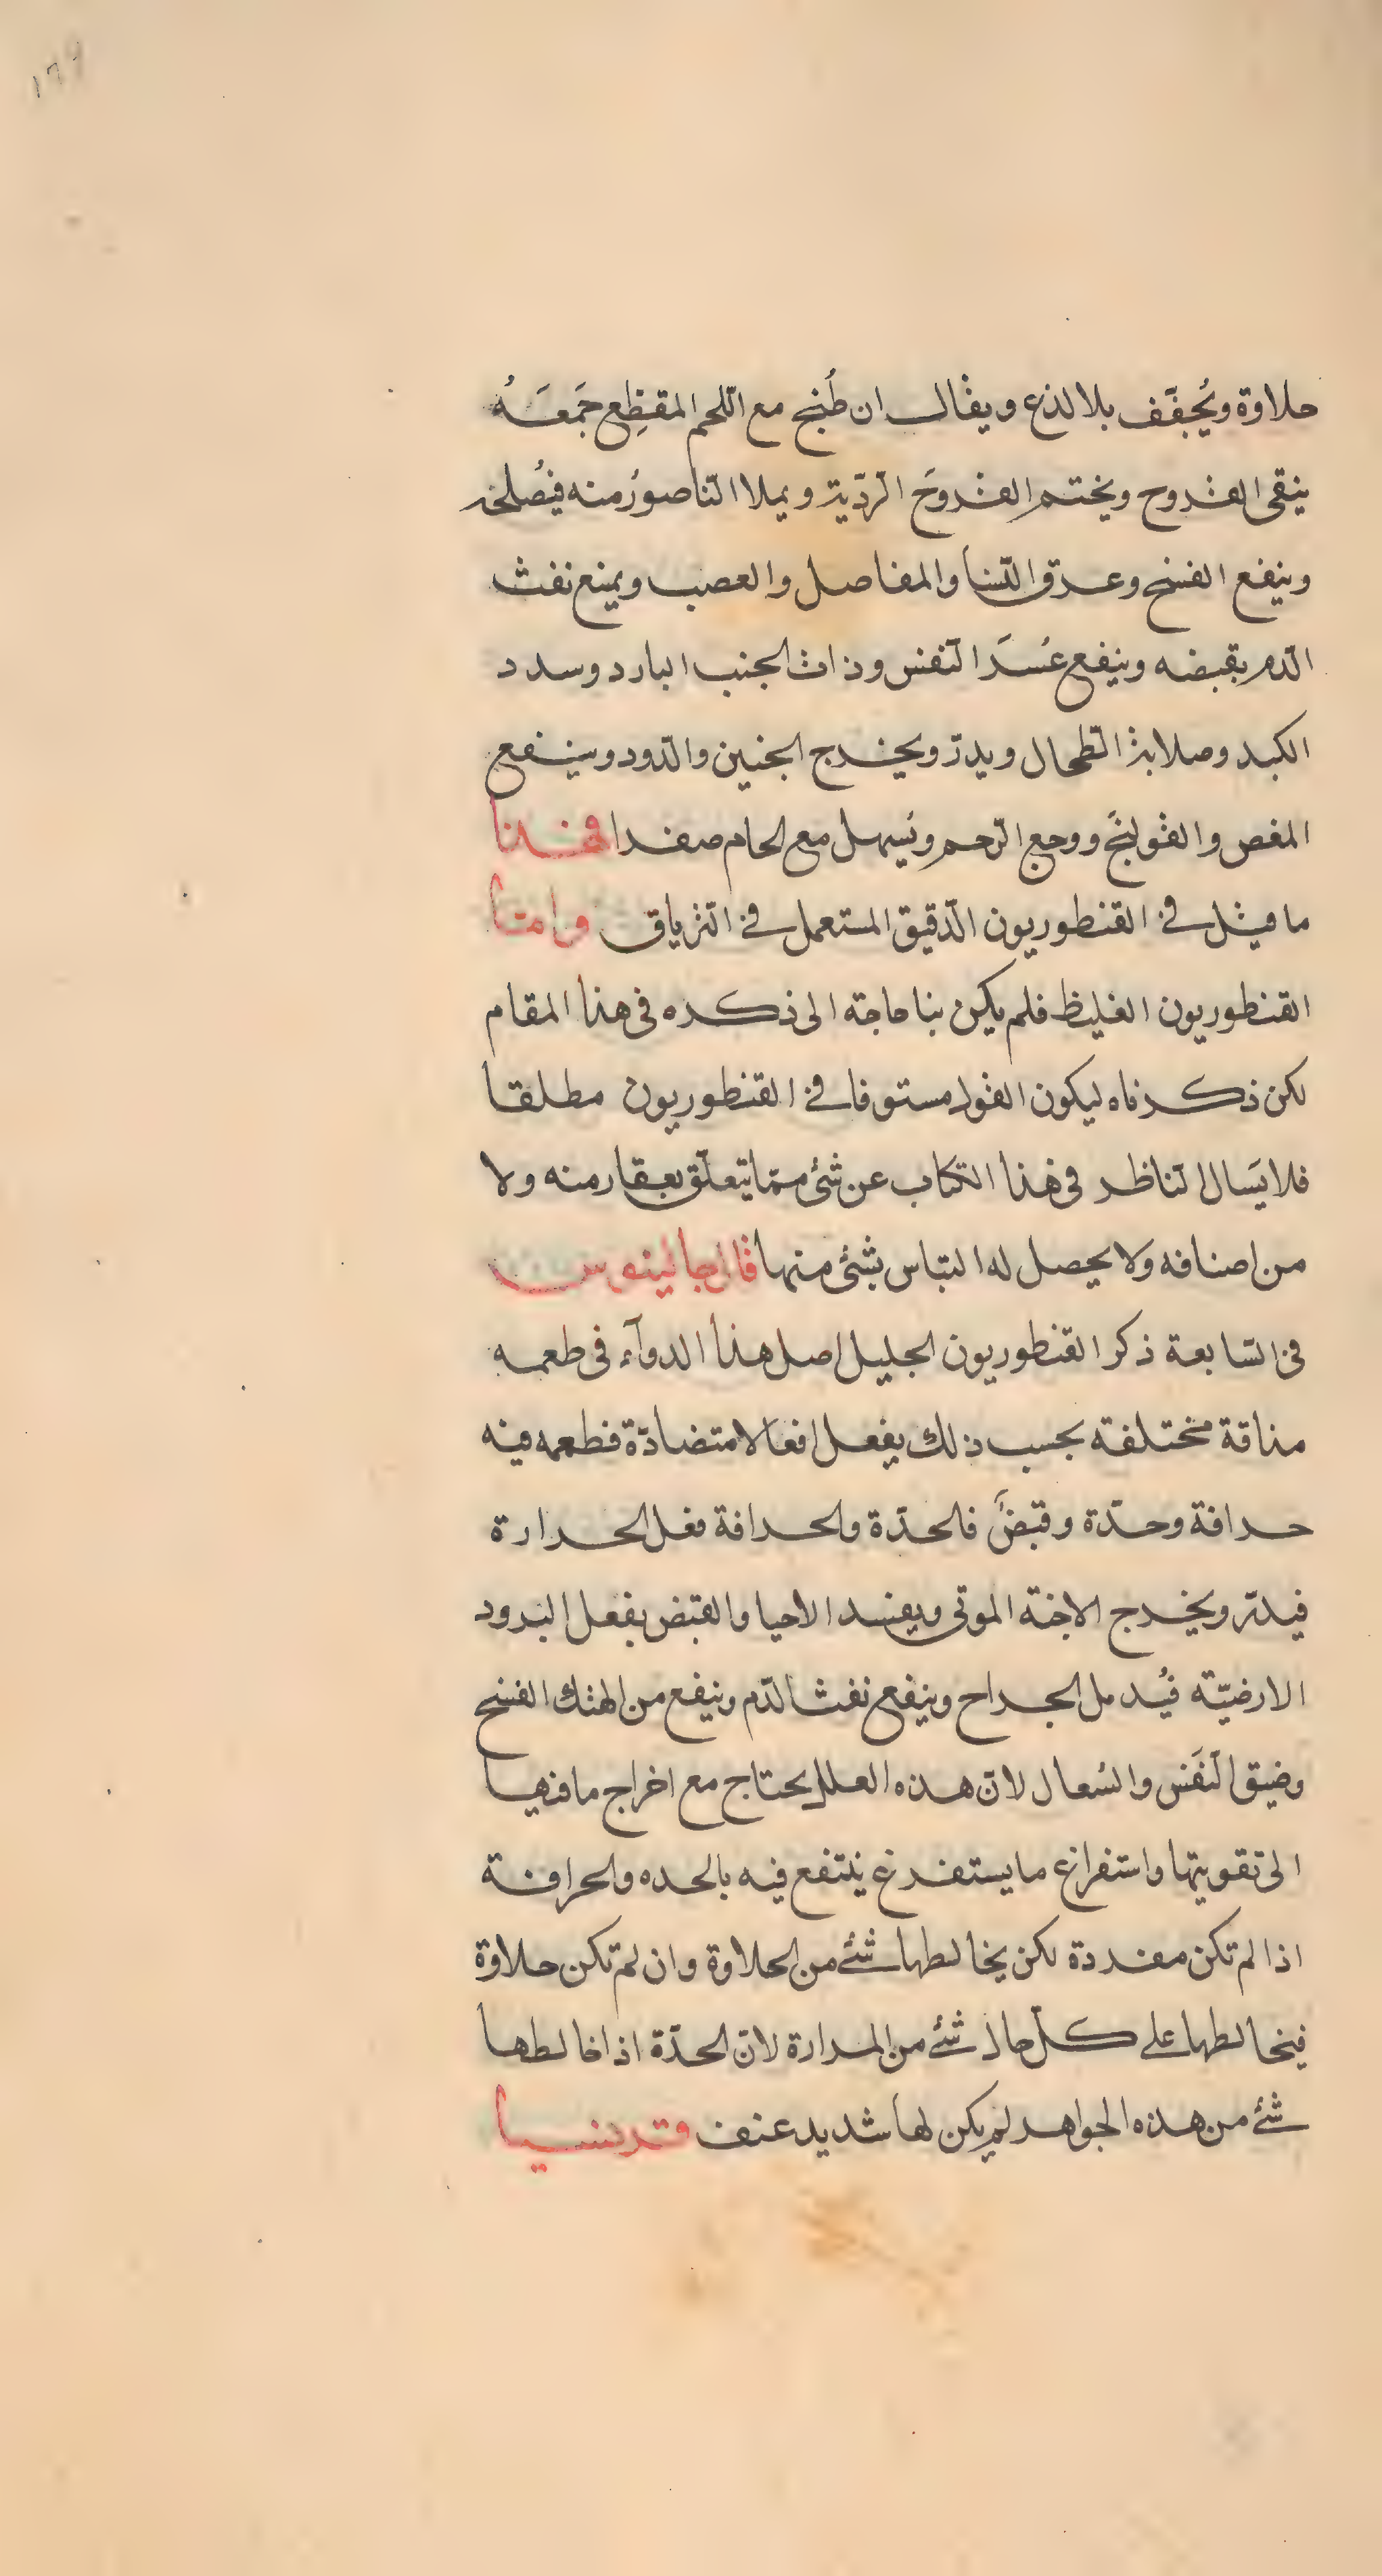 ١٦٩
حلاوة ويُجفَّف بلا لذع ويقال ان طُبخ مع اللّحم المقطِع جَمَعَهُ
ينقى القروح ويختم القروحَ الرّديّة ويملا النّاصوُر منه فيُصلحه
وينفع الفسخ وعرق النّسا والمفاصل والعصب ويمنع نفث
الدّم بقبضه وينفع عُسرَ النّفس وذات الجنب البارد وسدد
الكبد وصلابة الطّحال ويدرّ ويخرج الجنين والدّود وينفع
المغص والقولنج ووجع الرّحم ويُسهل مع الخام صفرا فهذا
ما قيل في القنطوريون الدّقيق المستعمل في التّرياق وامّا
القنطوريون الغليظ فلم يكن بنا حاجة الى ذكره في هذا المقام
لكن ذكرناه ليكون القول مستوفا في القنطوريون مطلقا
فلا يَسال النّاظر في هذا الكتاب عن شئ ممّا يتعلّق بعقار منه ولا
من اصنافه ولا يحصل له التباس بشئ منها قال جالينوس
في السّابعة ذكر القنطوريون الجليل اصل هذا الدوآء في طعمه
مذاقة مختلفة بحسب ذلك يفعل افعالا متضادّة فطعمه فيه
حرافة وحدّة وقبَضٌ فالحدّة والحرافة فعل الحرارة
فيدرّ ويخرج الاجنة الموتى ويفسد الاحيا والقبض بفعل البرود
الارضيّة فيُدمل الجراح وينفع نفث الدّم وينفع من الهتك الفسخ
وضيق النّفَس والسُعال لانّ هذه العلل يحتاج مع اخراج ما فيها
الى تقويتها واستفراغ ما يستفرغ ينتفع فيه بالحده والحرافة
اذا لم تكن مفردة لكن يخالطها شئ من الحلاوة وان لم تكن حلاوة
فيخالطها على كلّ حال شئ من المرارة لانّ الحدّة اذا خالطها
شئ من هذه الجواهر لم يكن لها شديد عنف